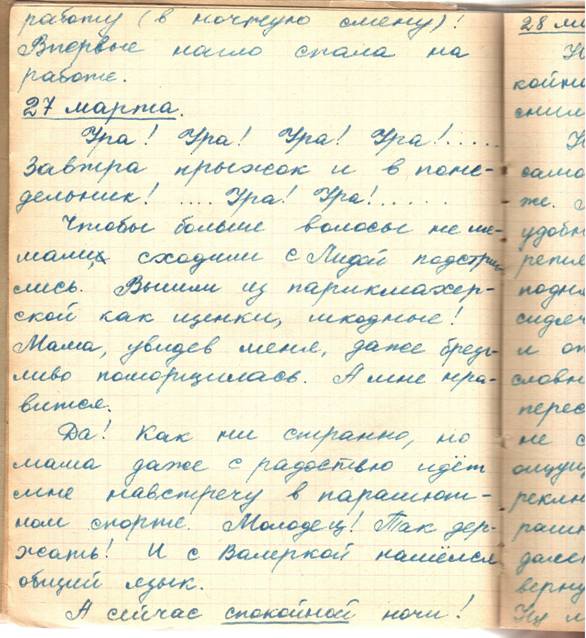 работу (в ночную смену)!
Впервые нагло спала на
работе.
27 марта.
Ура! Ура! Ура! Ура!.....
Завтра прыжок и в поне-
дельник! .... Ура! Ура!......
Чтобы больше волосы не ме-
шали, сходили с Лидой подстриг-
лись. Вышли из парикмахер-
ской как щенки, шкодные!
Мама, увидев меня, даже брезг-
ливо поморщилась. А мне нра-
вится.
Да! Как ни странно, но
мама даже с радостью идёт
мне навстречу в парашют-
ном спорте. Молодец! Так дер-
жать! И с Валеркой нашёлся
общий язык.
А сейчас спокойной ночи!
28 ма
койно
сним
само
же. 
удобн
репля
подня
сидяч
и от
словн
перес
не с
ощущ
реклю
раши
далек
верну